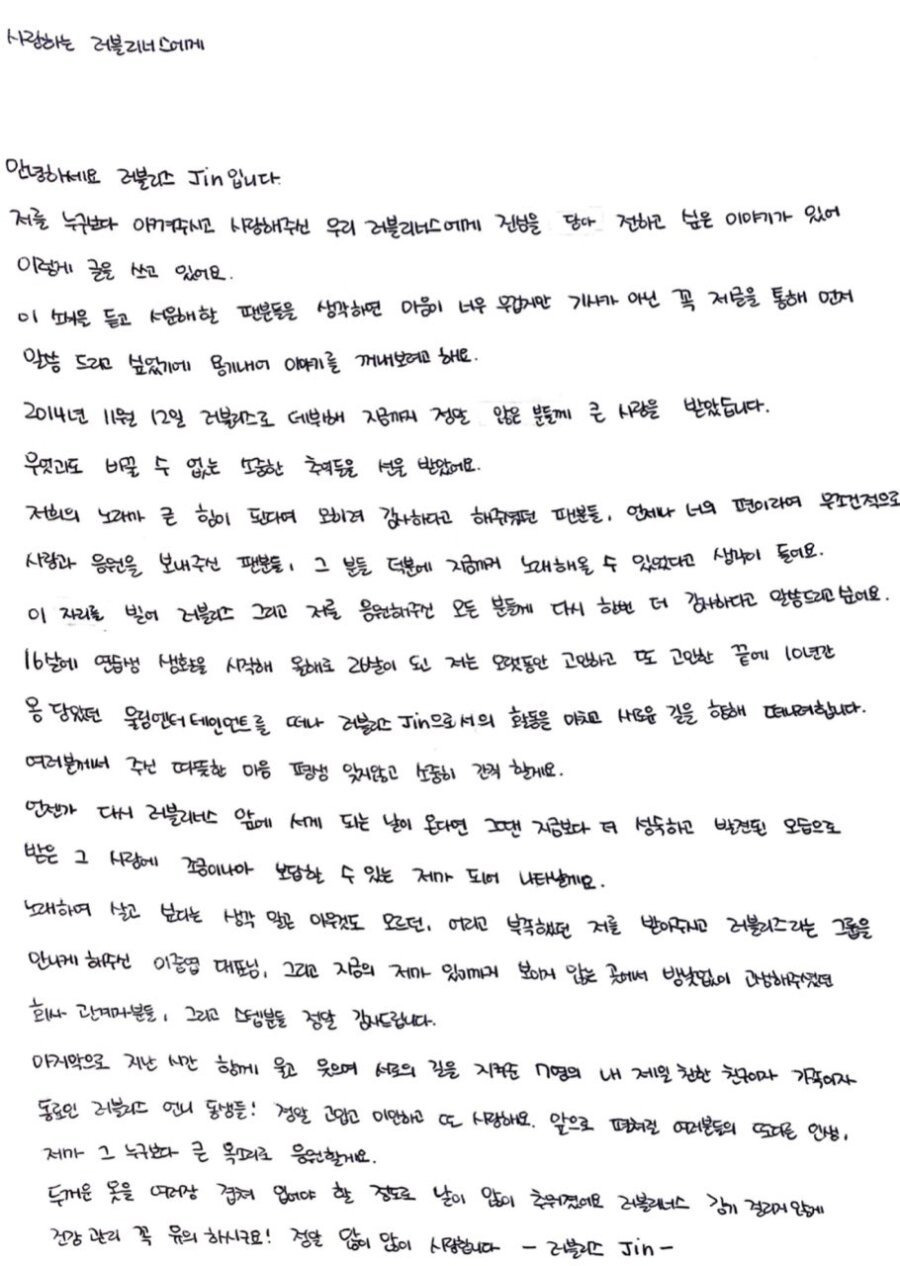 사랑하는 러블리너스에게
안녕하세요 러블리즈 Jin입니다.
저를 누구보다 아껴주시고 사랑해주신 우리 러블리너스에게 진심을 담아 전하고 싶은 이야기가 있어
이렇게 글을 쓰고 있어요.
이 소식을 듣고 서운해할 팬분들을 생각하면 마음이 너무 무겁지만 기사가 아닌 꼭 저희글을 통해 먼저
말씀 드리고 싶었기에 용기내어 이야기를 꺼내보려고 해요.
2014년 11월 12일 러블리즈로 데뷔해 지금까지 정말 많은 분들께 큰 사랑을 받았습니다.
무엇과도 바꿀 수 없는 소중한 추억들을 선물 받았어요.
저희의 노래가 큰 힘이 된다며 오히려 감사하다고 해주셨던 팬분들, 언제나 너의 편이라며 무조건적으로
사랑과 응원을 보내주신 팬분들, 그 분들 덕분에 지금까지 노래해올 수 있었다고 생각이 들어요.
이 자리를 빌어 러블리즈 그리고 저를 응원해주신 모든 분들께 다시 한번 더 감사하다고 말씀드리고 싶어요.
16살에 연습생 생활을 시작해 올해로 26살이 된 저는 오랫동안 고민하고 또 고민한 끝에 10년간
몸 담았던 울림엔터테인먼트를 떠나 러블리즈 Jin으로서의 활동을 마치고 새로운 길을 향해 떠나려합니다.
여러분께서 주신 따뜻한 마음 평생 잊지않고 소중히 간직 할게요.
언젠가 다시 러블리너스 앞에 서게 되는 날이 온다면 그땐 지금보다 더 성숙하고 발전된 모습으로
받은 그 사랑에 조금이나마 보답할 수 있는 제가 되어 나타날게요.
노래하며 살고 싶다는 생각 말곤 아무것도 모르던, 어리고 부족했던 저를 받아주시고 러블리즈라는 그룹을
만나게 해주신 이중엽 대표님, 그리고 지금의 제가 있기까지 보이지 않는 곳에서 밤낮없이 고생해주셨던
회사 관계자분들, 그리고 스텝분들 정말 감사드립니다.
마지막으로 지난 시간 함께 울고 웃으며 서로의 길을 지켜준 7명의 내 제일 친한 친구이자 가족이자
동료인 러블리즈 언니 동생들! 정말 고맙고 미안하고 또 사랑해요. 앞으로 펼쳐질 여러분들의 또다른 인생,
제가 그 누구보다 큰 목소리로 응원할게요.
두꺼운 옷을 여러장 겹쳐 입어야 할 정도로 날이 많이 추워졌어요 러블리너스 감기 걸리지않게
건강 관리 꼭 유의 하시구요! 정말 많이 많이 사랑합니다 - 러블리즈 Jin -